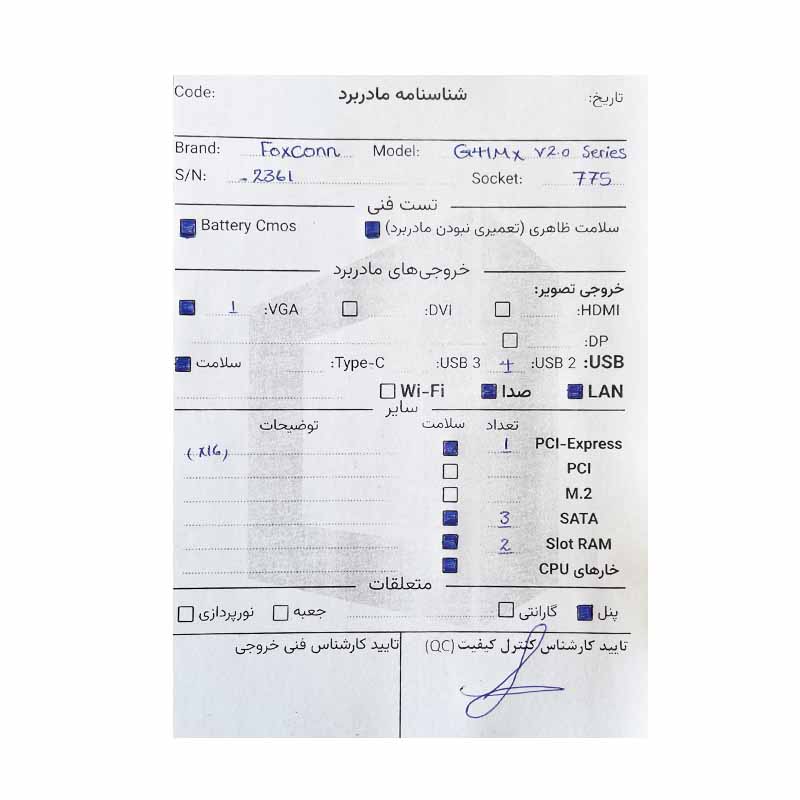 تاریخ: شناسنامه مادربرد Code:
Brand: Foxconn Model: G41Mx V2.0 Series
S/N: 2361 Socket: 775
تست فنی
سلامت ظاهری (تعمیری نبودن مادربرد) Battery Cmos
خروجی‌های مادربرد
خروجی تصویر:
HDMI: DVI: VGA: 1
DP:
USB: USB 2: 4 USB 3: Type-C: سلامت
LAN صدا Wi-Fi
سایر
تعداد سلامت توضیحات
PCI-Express 1 (x16)
PCI
M.2
SATA 3
Slot RAM 2
خارهای CPU
متعلقات
پنل گارانتی جعبه نورپردازی
تایید کارشناس کنترل کیفیت (QC) تایید کارشناس فنی خروجی